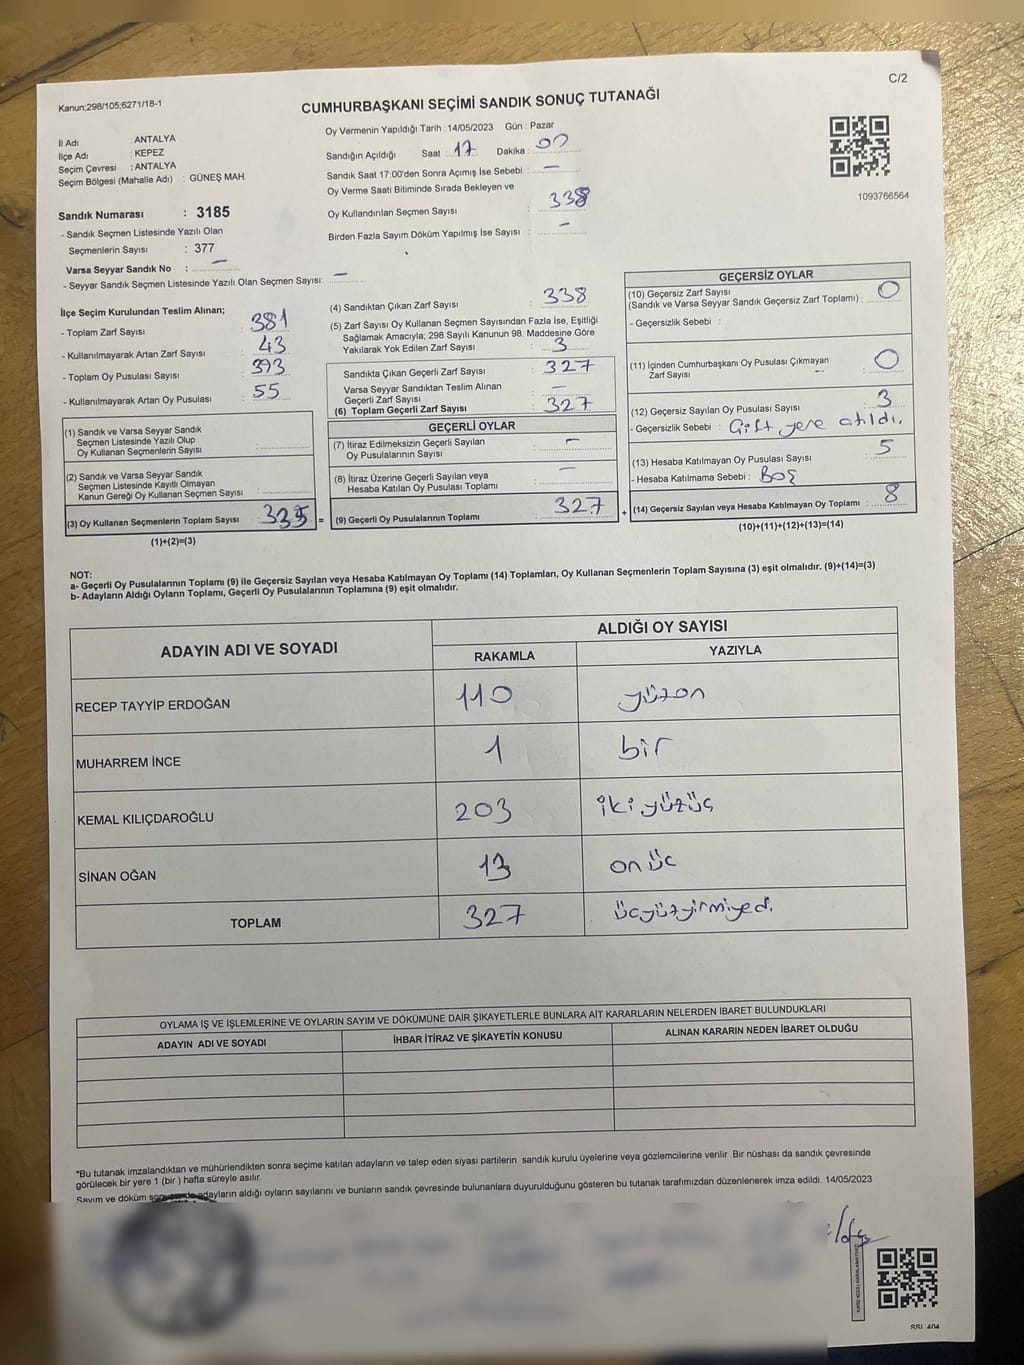 C/2
Kanun;298/105;6271/18-1
CUMHURBAŞKANI SEÇİMİ SANDIK SONUÇ TUTANAĞI
İl Adı : ANTALYA
İlçe Adı : KEPEZ
Seçim Çevresi : ANTALYA
Seçim Bölgesi (Mahalle Adı) : GÜNEŞ MAH.
Oy Vermenin Yapıldığı Tarih : 14/05/2023 Gün : Pazar
Sandığın Açıldığı Saat : 17 Dakika : 00
Sandık Saat 17:00'den Sonra Açımış İse Sebebi : —
Oy Verme Saati Bitiminde Sırada Bekleyen ve
Oy Kullandırılan Seçmen Sayısı : 338
Birden Fazla Sayım Döküm Yapılmış İse Sayısı : —
1093766564
Sandık Numarası : 3185
- Sandık Seçmen Listesinde Yazılı Olan
Seçmenlerin Sayısı : 377
Varsa Seyyar Sandık No : —
- Seyyar Sandık Seçmen Listesinde Yazılı Olan Seçmen Sayısı: —
İlçe Seçim Kurulundan Teslim Alınan;
- Toplam Zarf Sayısı : 381
- Kullanılmayarak Artan Zarf Sayısı : 43
- Toplam Oy Pusulası Sayısı : 393
- Kullanılmayarak Artan Oy Pusulası : 55
(1) Sandık ve Varsa Seyyar Sandık
Seçmen Listesinde Yazılı Olup
Oy Kullanan Seçmenlerin Sayısı :
(2) Sandık ve Varsa Seyyar Sandık
Seçmen Listesinde Kayıtlı Olmayan
Kanun Gereği Oy Kullanan Seçmen Sayısı :
(3) Oy Kullanan Seçmenlerin Toplam Sayısı : 335 =
(1)+(2)=(3)
(4) Sandıktan Çıkan Zarf Sayısı : 338
(5) Zarf Sayısı Oy Kullanan Seçmen Sayısından Fazla İse, Eşitliği
Sağlamak Amacıyla; 298 Sayılı Kanunun 98. Maddesine Göre
Yakılarak Yok Edilen Zarf Sayısı : 3
Sandıkta Çıkan Geçerli Zarf Sayısı : 327
Varsa Seyyar Sandıktan Teslim Alınan
Geçerli Zarf Sayısı : —
(6) Toplam Geçerli Zarf Sayısı : 327
GEÇERLİ OYLAR
(7) İtiraz Edilmeksizin Geçerli Sayılan
Oy Pusulalarının Sayısı : —
(8) İtiraz Üzerine Geçerli Sayılan veya
Hesaba Katılan Oy Pusulası Toplamı : —
(9) Geçerli Oy Pusulalarının Toplamı : 327 +
GEÇERSİZ OYLAR
(10) Geçersiz Zarf Sayısı
(Sandık ve Varsa Seyyar Sandık Geçersiz Zarf Toplamı) : 0
- Geçersizlik Sebebi :
(11) İçinden Cumhurbaşkanı Oy Pusulası Çıkmayan
Zarf Sayısı : 0
(12) Geçersiz Sayılan Oy Pusulası Sayısı : 3
- Geçersizlik Sebebi : Çift yere atıldı.
(13) Hesaba Katılmayan Oy Pusulası Sayısı : 5
- Hesaba Katılmama Sebebi : Boş
(14) Geçersiz Sayılan veya Hesaba Katılmayan Oy Toplamı : 8
(10)+(11)+(12)+(13)=(14)
NOT:
a- Geçerli Oy Pusulalarının Toplamı (9) ile Geçersiz Sayılan veya Hesaba Katılmayan Oy Toplamı (14) Toplamları, Oy Kullanan Seçmenlerin Toplam Sayısına (3) eşit olmalıdır. (9)+(14)=(3)
b- Adayların Aldığı Oyların Toplamı, Geçerli Oy Pusulalarının Toplamına (9) eşit olmalıdır.
ADAYIN ADI VE SOYADI
ALDIĞI OY SAYISI
RAKAMLA YAZIYLA
RECEP TAYYİP ERDOĞAN 110 yüzon
MUHARREM İNCE 1 bir
KEMAL KILIÇDAROĞLU 203 iki yüzüç
SİNAN OĞAN 13 on üç
TOPLAM 327 üçyüzyirmiyedi
OYLAMA İŞ VE İŞLEMLERİNE VE OYLARIN SAYIM VE DÖKÜMÜNE DAİR ŞİKAYETLERLE BUNLARA AİT KARARLARIN NELERDEN İBARET BULUNDUKLARI
ADAYIN ADI VE SOYADI İHBAR İTİRAZ VE ŞİKAYETİN KONUSU ALINAN KARARIN NEDEN İBARET OLDUĞU
*Bu tutanak imzalandıktan ve mühürlendikten sonra seçime katılan adayların ve talep eden siyasi partilerin sandık kurulu üyelerine veya gözlemcilerine verilir .Bir nüshası da sandık çevresinde
görülecek bir yere 1 (bir ) hafta süreyle asılır.
Sayım ve döküm sonrasında adayların aldığı oyların sayılarını ve bunların sandık çevresinde bulunanlara duyurulduğunu gösteren bu tutanak tarafımızdan düzenlenerek imza edildi. 14/05/2023